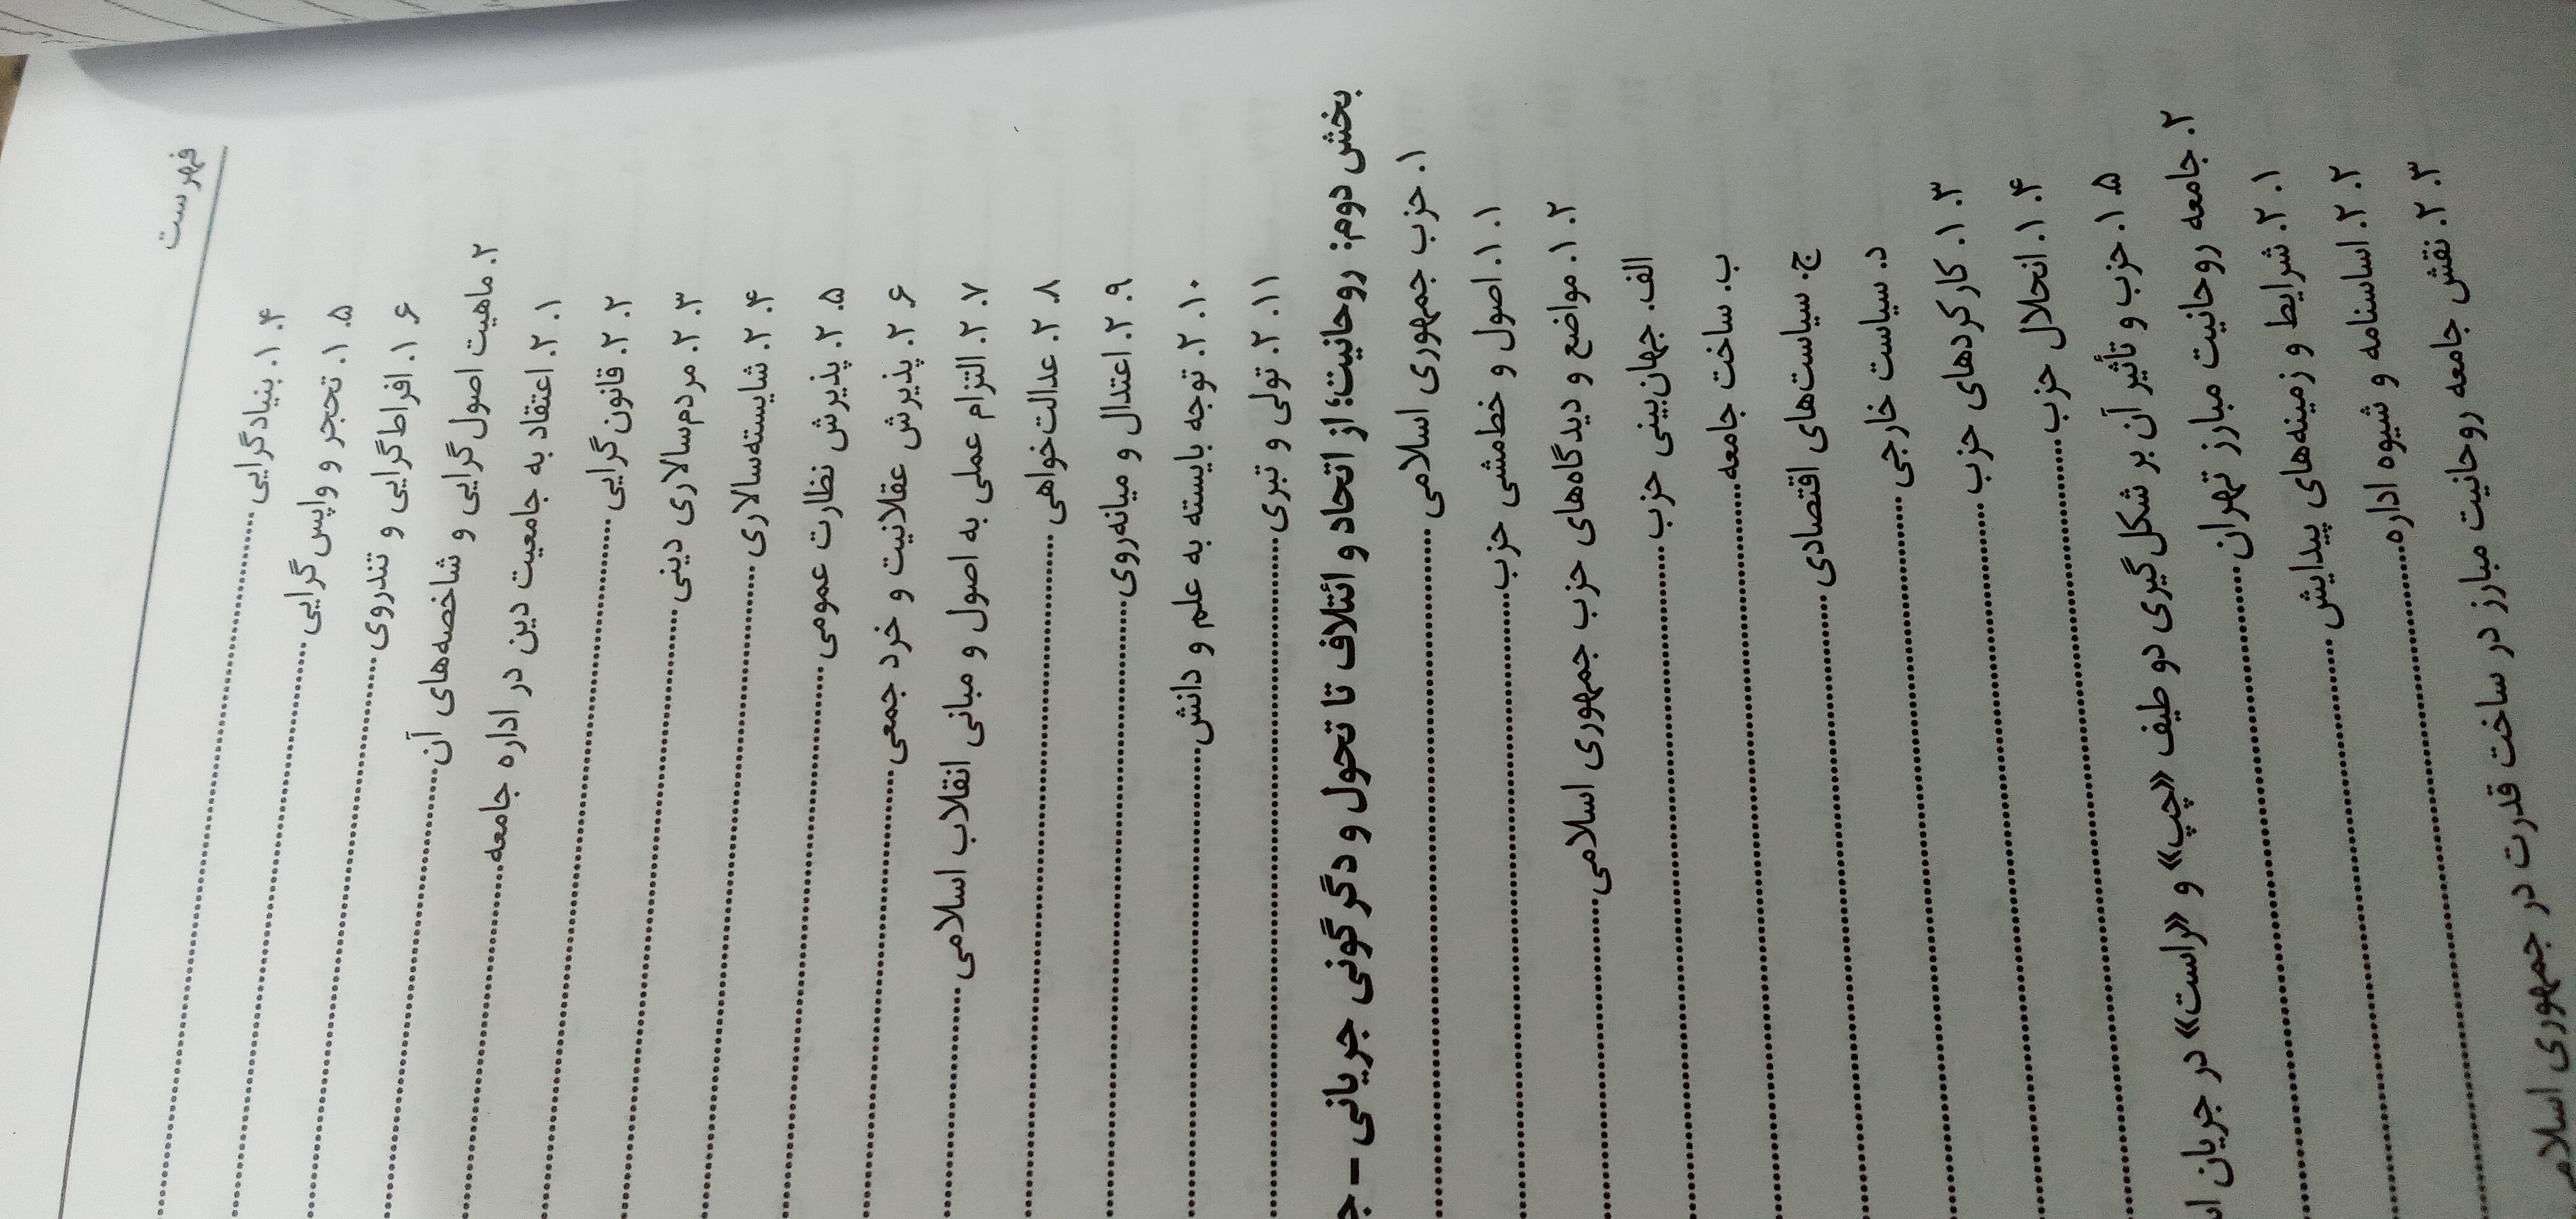 فهرست
۱.۴. بنیادگرایی
۱.۵. تحجر و واپس‌گرایی
۱.۶. افراط‌گرایی و تندروی
۲. ماهیت اصول‌گرایی و شاخصه‌های آن
۲.۱. اعتقاد به جامعیت دین در اداره جامعه
۲.۲. قانون‌گرایی
۲.۳. مردم‌سالاری دینی
۲.۴. شایسته‌سالاری
۲.۵. پذیرش نظارت عمومی
۲.۶. پذیرش عقلانیت و خرد جمعی
۲.۷. التزام عملی به اصول و مبانی انقلاب اسلامی
۲.۸. عدالت‌خواهی
۲.۹. اعتدال و میانه‌روی
۲.۱۰. توجه بایسته به علم و دانش
۲.۱۱. تولی و تبری
بخش دوم: روحانیت؛ از اتحاد و ائتلاف تا تحول و دگرگونی جریانی –
۱. حزب جمهوری اسلامی
۱.۱. اصول و خط‌مشی حزب
۱.۲. مواضع و دیدگاه‌های حزب جمهوری اسلامی
الف. جهان‌بینی حزب
ب. ساخت جامعه
ج. سیاست‌های اقتصادی
د. سیاست خارجی
۱.۳. کارکردهای حزب
۱.۴. انحلال حزب
۱.۵. حزب و تأثیر آن بر شکل‌گیری دو طیف «چپ» و «راست» در جریان
۲. جامعه روحانیت مبارز تهران
۲.۱. شرایط و زمینه‌های پیدایش
۲.۲. اساسنامه و شیوه اداره
۲.۳. نقش جامعه روحانیت مبارز در ساخت قدرت در جمهوری اسلامی